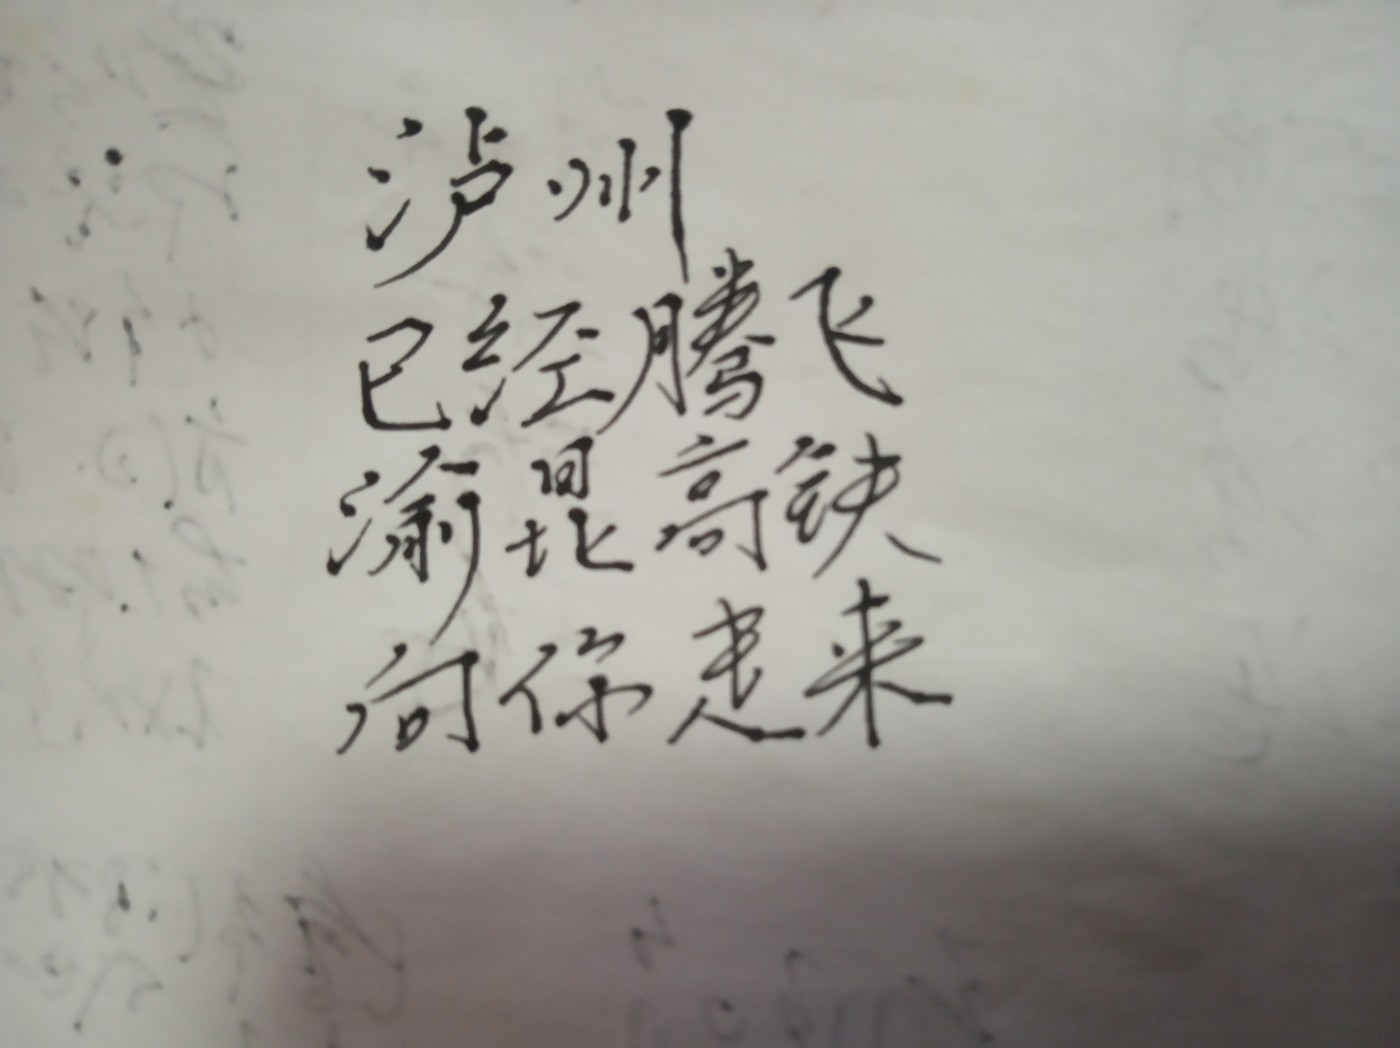 泸州
已经腾飞
渝昆高铁
向你走来